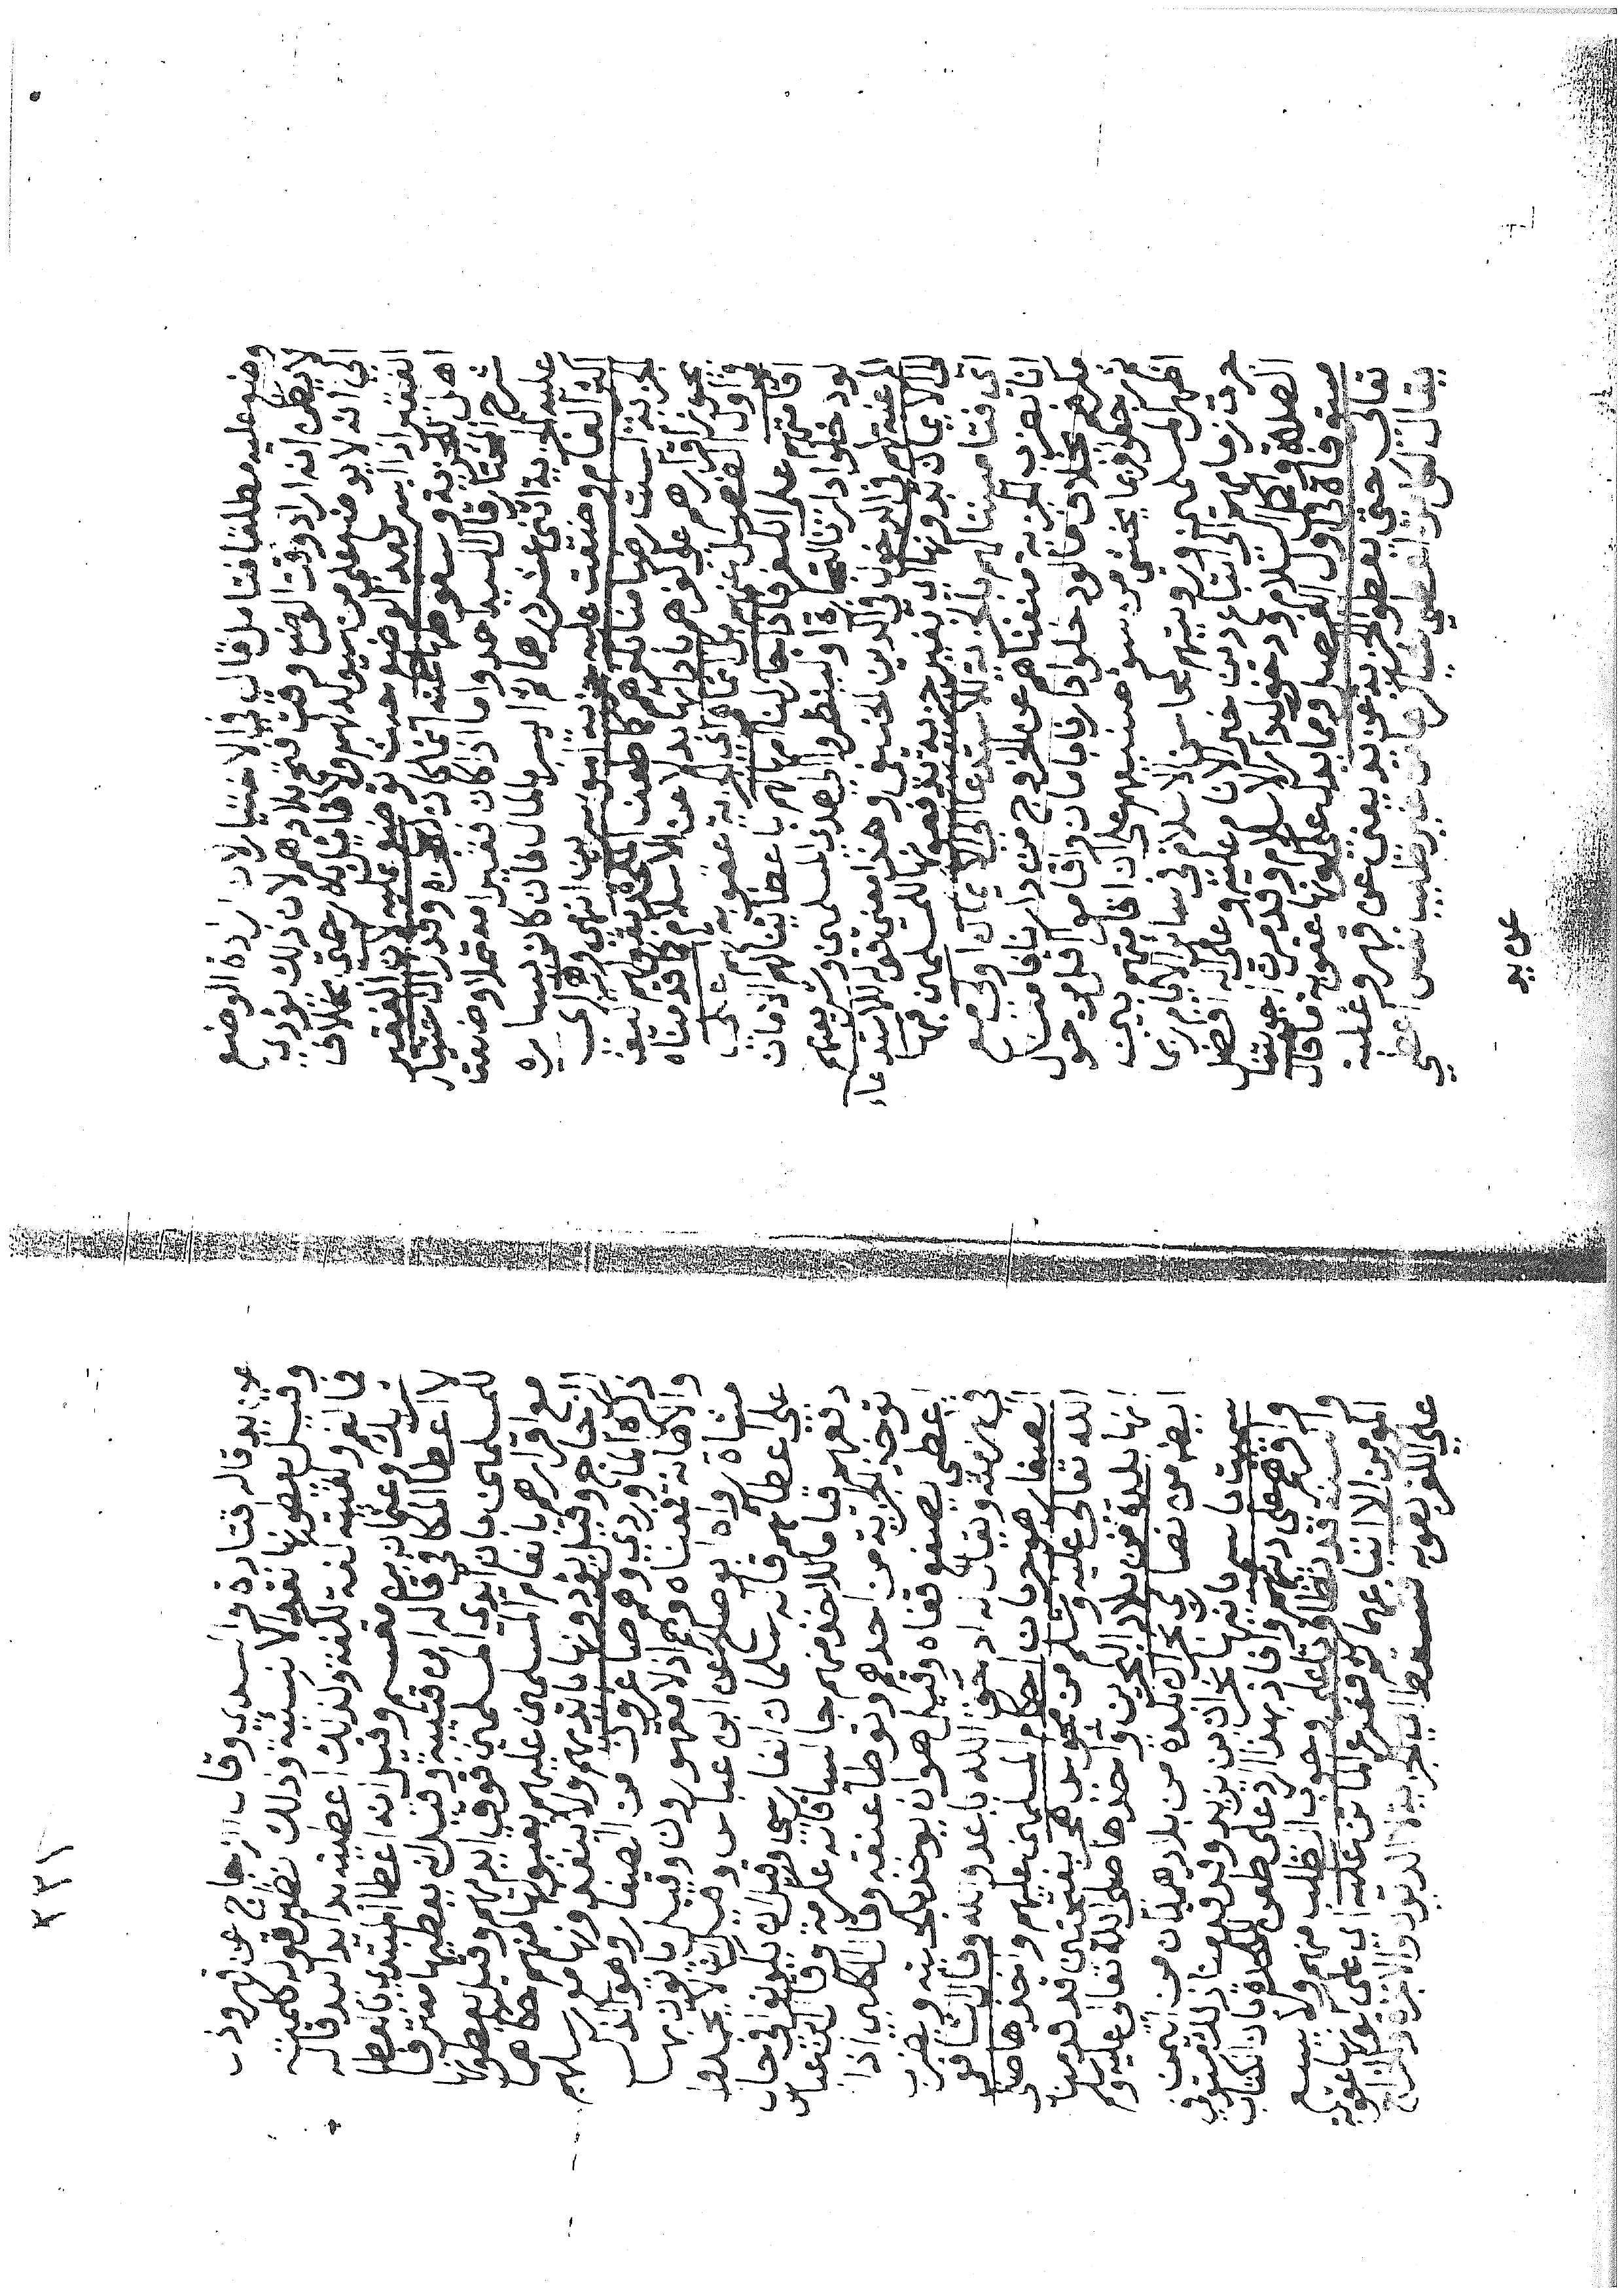 وضع عليه مطلقا فتامل قال في الاختيار لان ارادة الوضع
لا يظن انه اراد وقت الوضع وقت فتح بلادهم لان ذلك يؤدي
الى انه لا يوضع على من سيولد لهم ولا قائل به رحمتي بخلاف
الفقير اذا ايسر بعد الوضع حيث توضع عليه لان الفقير
اهل للجزية وسقوطها عنه انما كان لعجزه وقد زال اختيار
شرح المختار قال السيد احمد واما اذا كان فقيرا معتملا وضعت
عليه الجزية اثنى عشر درهما ثم ايسر بالمال فان كان يساره
العام وضعت عليه جزية الموسرين انتهى وهي اي
الجزية ليست رضا منا بكفرهم كما طعن الملحدة بقولهم كيف
يجوز اقرارهم على كفرهم باداء بدل عن الاسلام كما قدمناه
في اول الفصل بل انما هي اي الجزية عقوبة لهم على
اقامتهم على الكفر فاذا جاز امهالهم باعطائنا لهم الامان
لو دخلوا دارنا للتجارة او لينظروا الى هدي المسلمين وشريعتهم
في الدخول في الدين الحنيفي وهذا معنى قوله للاستدعاء
الى الايمان بدونها اي بغير جزية يدفعونها للمسلمين فبها
اي فتامينا لهم بالجزية للاستدعا الى الايمان اولى مع
انا بضرب الجزية منعناهم عن الخروج من دارنا فامنا
مكرهم بخلاف ما لو دخلوا دارنا بامان واقاموا اقل من حول
ثم رجعوا فربما يخشى من سوء صنيعهم على ان اقامتهم بين
اظهر المسلمين ورويتهم محاسن الاسلام في سائر الايام ربما
جرت زمامهم الى اتباع دين خير الانام عليه وعلى اله افضل
الصلاة وازكى السلام ودخولهم دار الاسلام وقد مرت اجوبتنا
مستوفاة في اول الفصل ومما يدل على كونها عقوبة ما قال
تعالى حتى يعطوا الجزية عن يد يعني عن قهر وغلبة
يقال لكل من اعطى شيا كرها من غير طيب نفس اعطى
عن يد
٣٣١
عن يد قاله قتادة والسدي وقال الزجاج عن قهر وذل
وقيل يعطونها نقدا لا نسيئة وذلك نظير قولهم كلمته
فما لفم ولقيته كفة لكفة ولذلك اعطيته يدا بيد قاله
شريك وعثمان بن مقسم وقيل انه اعطا المبتدي بالعطا
لا عطا المكافي قاله ابن قتيبة وقيل ان يعطيها معترفا
للمسلمين بان ايدي المسلمين فوق ايديهم وقيل يعطونها
مع اقرارهم بانعام المسلمين عليهم بقبولها منهم حكاهما
الزجاج وقيل يؤدونها بايديهم ولا ينفذونها مع رسلهم
ذكره الماوردي وهم صاغرون من الصغار وهو الذل
والاهانة فمعناه وهم اذلا مقهورون وقيل ما يكون بها
مشاة رواه ابو صالح عن ابن عباس وقيل ان لا يحمدوا
على اعطائهم قاله سلمان الفارسي وقيل ان يكونوا في حال
دفعهم قياما والاخذ منهم جالسا قاله عكرمة وقال ابن عباس
توخذ الجزية من احدهم وتوطا عنقه وقال الكلبي اذا
اعطى يصفع قفاه وقيل هو ان يوخذ بلحيته ويضرب
في لهزمته ويقال له اد حق الله يا عدو الله وقال الشافعي
الصغار هو جريان احكام المسلمين عليهم واخذها صلى
الله تعالى عليه وسلم من مجوس هجر بفتحتين قد قدمنا
انها بلدة من بلاد البحرين واخذها صلى الله تعالى عليه وسلم
ايضا من نصارى نجران بلدة من بلاد همدان من اليمن
سميت باسم بانيها نجران بن زيد وقد قدمنا ذلك مستوفى
واقرهم على دينهم وافاد بهذا الرد على طعن الملحدة بان الكتاب
والسنة قد تظافرتا على وجوب الطلب منهم ولا يسع
المومن الا اتباعهما ثم فرع الماتن عليه اي على كونها عقوبة
على الكفر بقوله فتسقط اي الجزية الدنيوية لا الاخروية